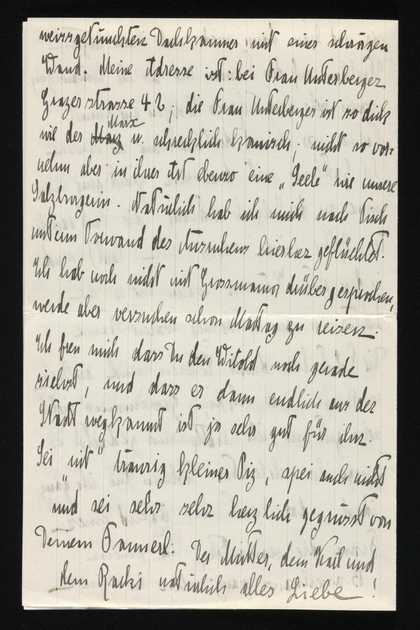 weissgetünchten Dachkammer mit einer schrägen
Wand. Meine Adresse ist: bei Frau Unterberger
Grazerstrasse 42, die Frau Unterberger ist so dick
wie der Max u. schrecklich komisch. nicht so vor-
nehm aber in ihrer Art ebenso eine „Seele" wie unsere
Salzburgerin. Natürlich hab ich mich nach Tisch
unterm Vorwand des Ausruhens hierher geflüchtet.
Ich hab noch nicht mit Grossmama drüber gesprochen,
werde aber versuchen schon Montag zu reisen.
Ich freu mich dass Du den Witold noch gerade
siehst, und dass er dann endlich aus der
Stadt wegkommt ist ja sehr gut für ihn.
Sei nit traurig kleiner Piz, spei auch nicht
und sei sehr sehr herzlich gegrüsst von
Deinem Pannerl. Der Mutter, dem Karl und
dem Racki natürlich alles Liebe!